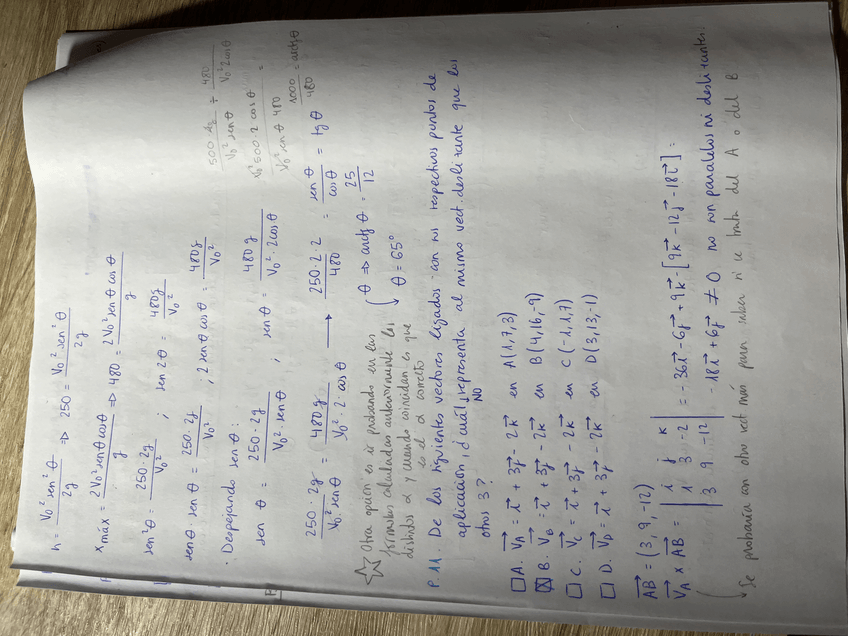 h = V₀² sen² θ / 2g ⇒ 250 = V₀² sen² θ / 2g
x máx = 2V₀² senθ cosθ / g ⇒ 480 = 2V₀² sen θ cos θ / g
sen² θ = 250·2g / V₀² ; sen 2θ = 480g / V₀²
senθ · sen θ = 250·2g / V₀² ; 2 senθ cosθ = 480g / V₀²
· Despejando senθ:
sen θ = 250·2g / V₀²·senθ ; senθ = 480 g / V₀²·2cosθ
500·2g / V₀² senθ = 480 / V₀² 2cosθ
V₀² 500·2 cosθ / V₀² senθ 480 =
1000 / 480 = arctg θ
250·2g / V₀² senθ = 480 g / V₀²·2·cosθ → 250·2·2 / 480 = senθ / cosθ = tg θ
θ ⇒ arctg θ = 25 / 12
θ = 65°
☆ Otra opción es ir probando en las
fórmulas calculadas anteriormente los
distintos α y cuando coincidan, es que
es el α correcto
P. 11. De los siguientes vectores ligados con sus respectivos puntos de
aplicación, ¿cuál NO representa al mismo vect. deslizante que los
otros 3?
☐ A. V⃗A = i⃗ + 3j⃗ - 2k⃗ en A(1,7,3)
☒ B. V⃗B = i⃗ + 3j⃗ - 2k⃗ en B(4,16,-9)
☐ C. V⃗C = i⃗ + 3j⃗ - 2k⃗ en C(-1,1,7)
☐ D. V⃗D = i⃗ + 3j⃗ - 2k⃗ en D(3,13,-1)
A⃗B = (3, 9, -12)
V⃗A × A⃗B = | i j k | 1 3 -2 | 3 9 -12 | = -36i⃗ - 6j⃗ + 9k⃗ - [9k⃗ - 12j⃗ - 18i⃗] =
- 18i⃗ + 6j⃗ ≠ 0 no son paralelos ni deslizantes.
Se probaría con otro vect más para saber si se trata del A o del B